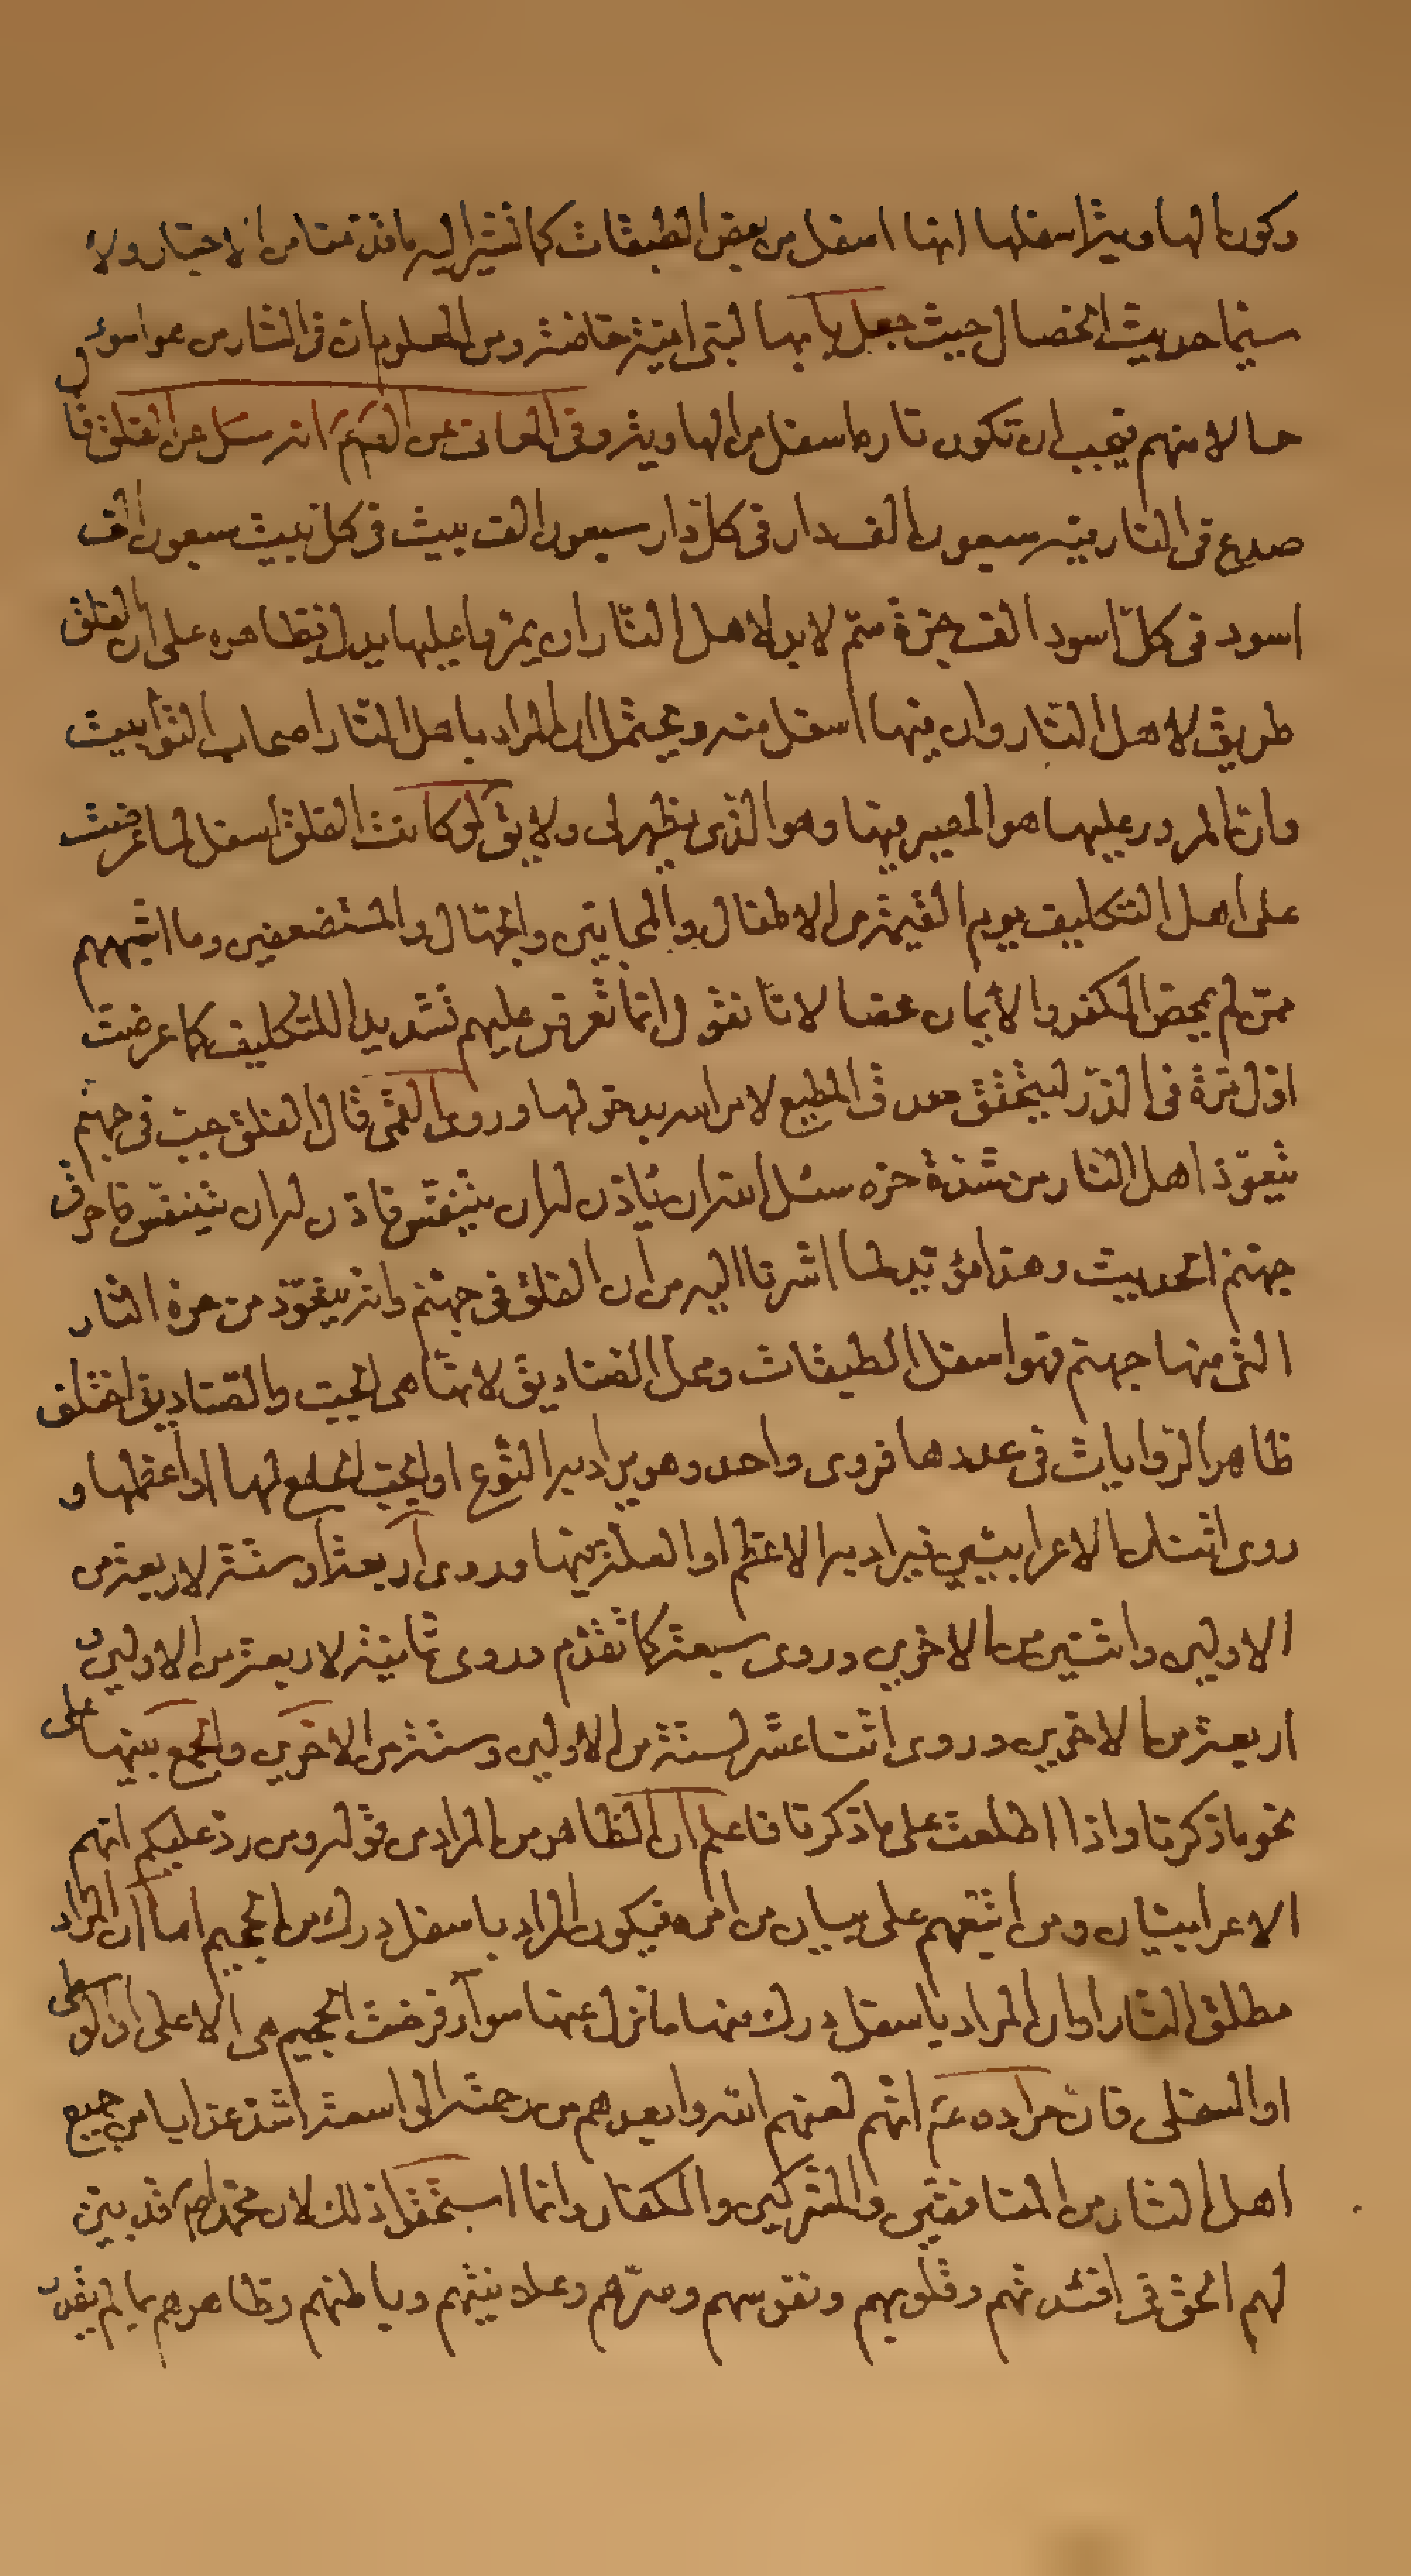 وكون الهاوية اسفلها انها اسفل من بعض الطبقات كما تشير اليه ما قدّمنا من الاخبار ولا
سيّما حديث الخصال حيث جعل بابها لبنى امية خاصّة ومن المعلوم ان فى النار من هو اسوء
حالا منهم فيجب ان تكون ناره اسفل من الهاوية وفى المعانى عن الصّ۴ انه سئل عن الفلق قا ل
صدع فى النار فيه سبعون الف دار فى كل دار سبعون الف بيت فى كل بيت سبعون الف
اسود فى كلّ اسود الف جرّة سمّ لا بد لاهل النّار ان يمرّوا عليها يدل بظاهره على ان الفلق
طريق لاهل النّار وان فيها اسفل منه ويحتمل ان المراد باهل النّار اصحاب التوابيت
وان المرور عليها هو المصير فيها وهو الذى يظهر لى ولا يق لو كانت الفلق اسفل لما عرضت
على اهل التكليف يوم القيمة من الاطفال والمجانين والجهّال والمستضعفين وما اشبههم
ممّن لم يمحض الكفر والأيمان محضا لانّا نقول انّما تعرض عليهم تشديدا للتكليف كما عرضت
اوّل مرّة فى الذّر ليتحقّق صدق المطيع لامر الله بدخولها وروى القمّى قال الفلق جبّ فى جهنّم
يتعوّذ اهل النار من شدّة حرّه سئل الله ان يأذن له ان يتنفّس فاذن له ان يتنفّس فاحرق
جهنّم الحديث وهذا مؤيّد لما اشرنا اليه من ان الفلق فى جهنّم وانه يتعوّذ من حرّه النار
التى منها جهنم فهو اسفل الطبقات ومحل الصّناديق لانها هى الجبّ والصّناديق اختلف
ظاهر الرّوايات فى عددها فروى واحد وهو يراد به النّوع او الجبّ الجامع لها او اعظمها و
روى اثنان الاعرابيين فيراد به الاعظم او العلّة فيها وروى اربعة او ستّة لاربعة من
الاولين واثنين من الاخرين وروى سبعة كما تقدّم وروى ثمانية لاربعة من الاولين و
اربعة من الاخرين وروى اثنا عشر لستّة من الاولين وستّة من الاخرين والجمع بينها على
نحو ما ذكرنا واذا اطلعت على ما ذكرنا فاعلم ان الظاهر من المراد من قوله ومن ردّ عليكم انهم
الاعرابيّان ومن اتبعهم على بيان من امره فيكون المراد باسفل درك من الجحيم اما ان المراد
مطلق النّار او ان المراد باسفل درك منها ما نزل عنها سوآء فرضت الجحيم هى الاعلى او الوسطى
او السفلى فان مراده عم انهم لعنهم الله وابعدهم من رحمته الواسعة اشدّ عذابا من جميع
اهل النّار من المنافقين والمشركين والكفار وانما استحقوا ذلك لان محمدا ص قد بيّن
لهم الحق فى افئدتهم وقلوبهم ونفوسهم وسرّهم وعلانيتهم وباطنهم وظاهرهم بما لم يقدر